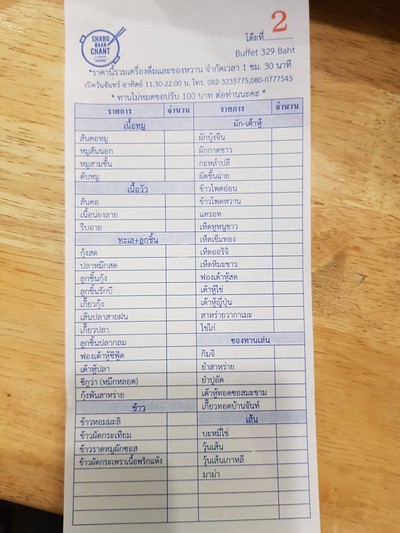 SHABU
BAAN
CHANT
โต๊ะที่ 2
Buffet 329 Baht
*ราคานี้รวมเครื่องดื่มและของหวาน จำกัดเวลา 1 ชม. 30 นาที
เปิดวันจันทร์-อาทิตย์ 11.30-22.00 น. โทร. 082-3235775,080-0777543
* ทานไม่หมดขอปรับ 100 บาท ต่อท่านนะคะ *
รายการ จำนวน รายการ จำนวน
เนื้อหมู
สันคอหมู
หมูสันนอก
หมูสามชั้น
ตับหมู
เนื้อวัว
สันคอ
เนื้อน่องลาย
ริบอาย
ทะเล+ลูกชิ้น
กุ้งสด
ปลาหมึกสด
ลูกชิ้นกุ้ง
ลูกชิ้นรักบี้
เกี๊ยวกุ้ง
เส้นปลาสายฝน
เกี๊ยวปลา
ลูกชิ้นปลากลม
ฟองเต้าหู้ซีฟู้ด
เต้าหู้ปลา
ชิกูว่า (หมึกหลอด)
กุ้งพันสาหร่าย
ข้าว
ข้าวหอมมะลิ
ข้าวผัดกระเทียม
ข้าวราดหมูผัดซอส
ข้าวผัดกระเพราเนื้อพริกแห้ง
ผัก-เต้าหู้
ผักบุ้งจีน
ผักกาดขาว
กะหล่ำปลี
ผัดขึ้นฉ่าย
ข้าวโพดอ่อน
ข้าวโพดหวาน
แครอท
เห็ดหูหนูขาว
เห็ดเข็มทอง
เห็ดออริจิ
เห็ดหิมะขาว
ฟองเต้าหู้สด
เต้าหู้ไข่
เต้าหู้ญี่ปุ่น
สาหร่ายวากาเมะ
ไข่ไก่
ของทานเล่น
กิมจิ
ยำสาหร่าย
ยำปูอัด
เต้าหู้ทอดซอสมะขาม
เกี๊ยวทอดบ้านจันท์
เส้น
บะหมี่ไข่
วุ้นเส้น
วุ้นเส้นเกาหลี
มาม่า